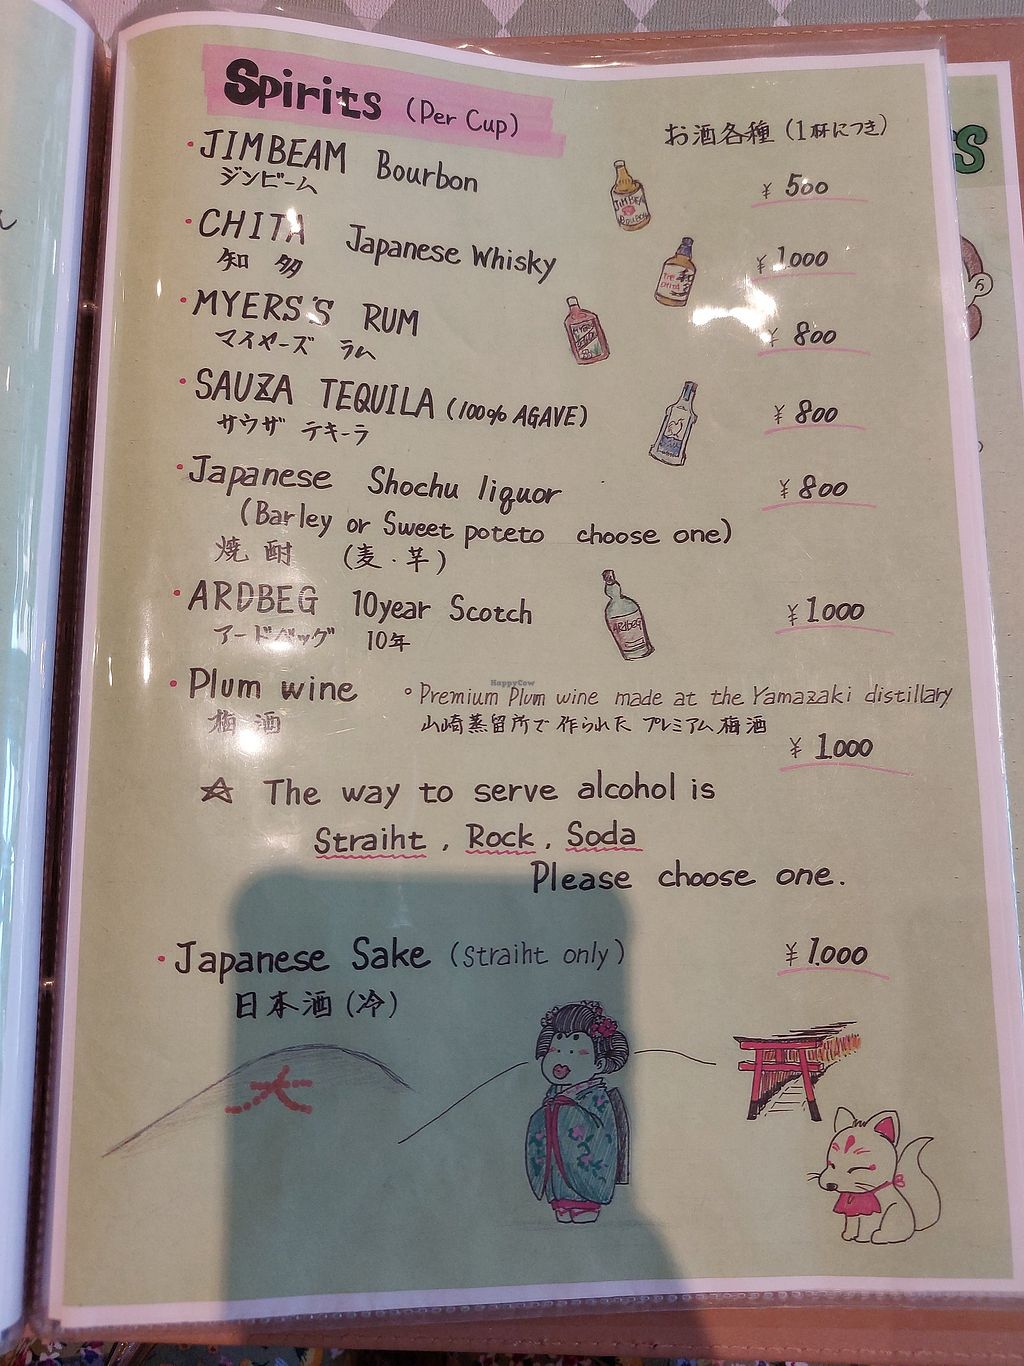 Spirits (Per Cup)
お酒各種 (1杯につき)
・JIMBEAM Bourbon ¥500
ジンビーム
・CHITA Japanese Whisky ¥1.000
知多
・MYERS'S RUM ¥800
マイヤーズ ラム
・SAUZA TEQUILA (100% AGAVE) ¥800
サウザ テキーラ
・Japanese Shochu liquor ¥800
(Barley or Sweet poteto choose one)
焼酎 (麦・芋)
・ARDBEG 10year Scotch ¥1.000
アードベッグ 10年
・Plum wine 。Premium Plum wine made at the Yamazaki distillary
梅酒 山崎蒸留所で作られた プレミアム梅酒
¥1.000
☆ The way to serve alcohol is
Straiht, Rock, Soda
Please choose one.
・Japanese Sake (straiht only) ¥1.000
日本酒(冷)
大
HappyCow